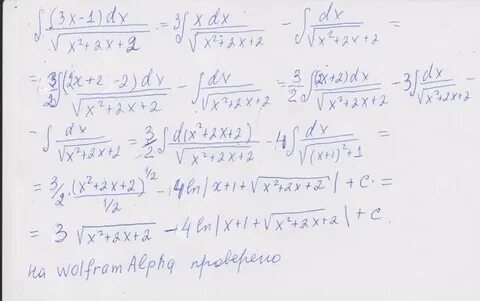 ∫ (3x-1)dx / √(x²+2x+2) = 3∫ x dx / √(x²+2x+2) - ∫ dx / √(x²+2x+2) =
= 3/2 ∫ (2x+2-2)dx / √(x²+2x+2) - ∫ dx / √(x²+2x+2) = 3/2 ∫ (2x+2)dx / √(x²+2x+2) - 3∫ dx / √(x²+2x+2) -
- ∫ dx / √(x²+2x+2) = 3/2 ∫ d(x²+2x+2) / √(x²+2x+2) - 4∫ dx / √((x+1)²+1) =
= 3/2 · (x²+2x+2)^(1/2) / (1/2) - 4ln|x+1+√(x²+2x+2)| + c =
= 3√(x²+2x+2) - 4ln|x+1+√(x²+2x+2)| + c
на Wolfram Alpha проверено